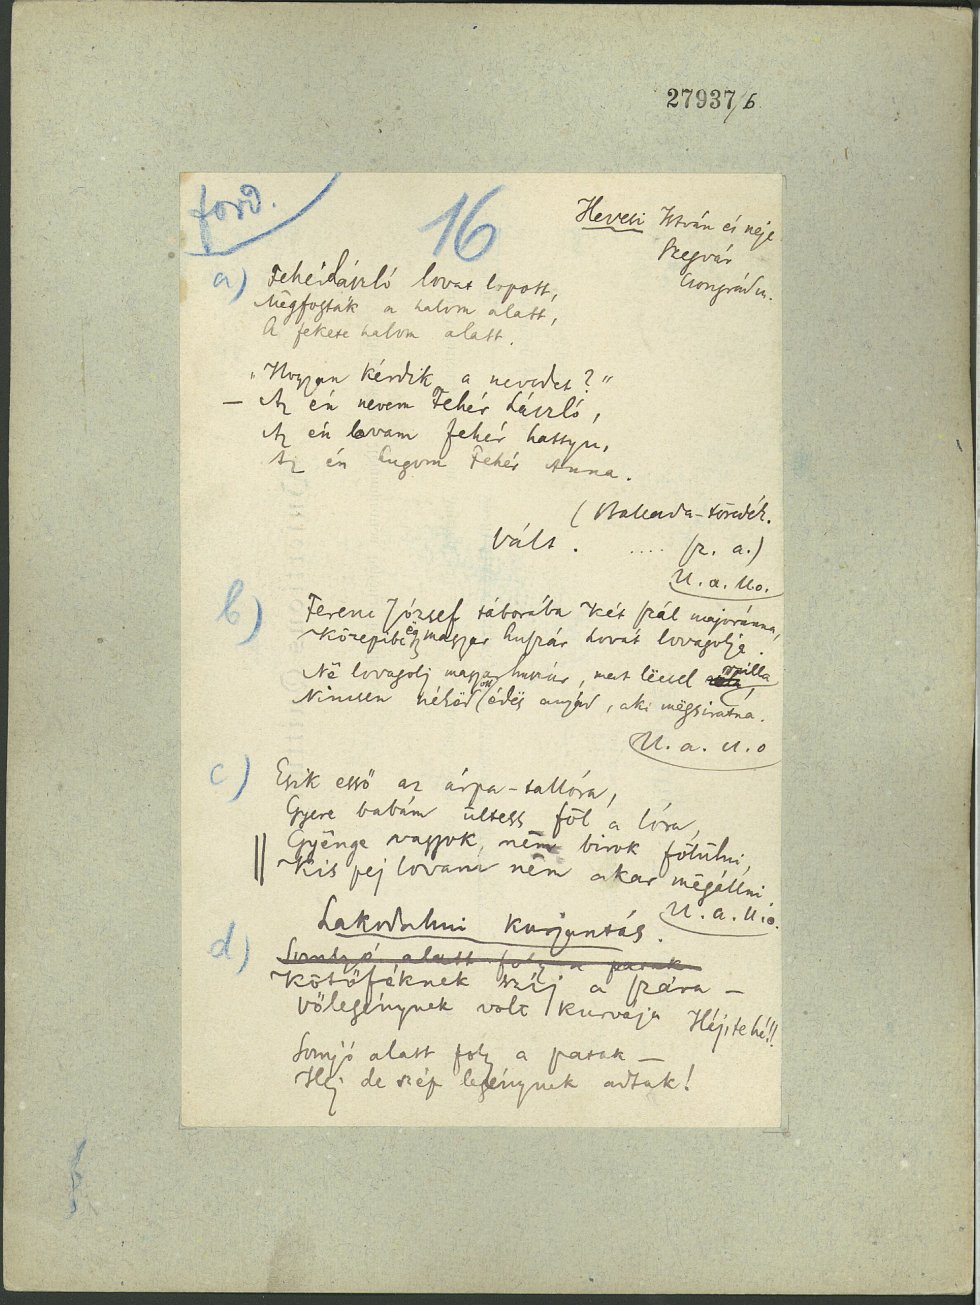 27937/6
ford.
16
Hevesi István és neje
Szegvár
Csongrád m.
a) Fehér László lovat lopott,
Mëgfogták a halom alatt,
A fekete halom alatt.
„Hogyan kérdik a nevedet?"
– Az én nevem Fehér László,
Az én lovam fehér hattyu,
Az én hugom Fehér Anna.
(Ballada-töredék.
Vált. .... (r. a.)
U. a. Uo.
b) Ferenc József táborába két szál majoránna,
Közepibe ëgy magyar huszár lovát lovagolja.
Në lovagolj magyar huszár, mert leesel rulla,
Nincsen néköd ott édës anyád, aki mëgsiratna.
U. a. u. o
c) Esik esső az árpa-tallóra,
Gyere babám ültess föl a lóra,
Gyönge vagyok, nëm birok fölülni,
Kis pej lovam nëm akar mëgállni.
U. a. U. o.
Lakodalmi kurjantás.
d) Somjó alatt foly a patak
Kötőféknek szíj a szára –
Vőlegénynek volt kurvája Héjjtehé!!
Somjó alatt foly a patak –
Hej de szép legénynek adtak!